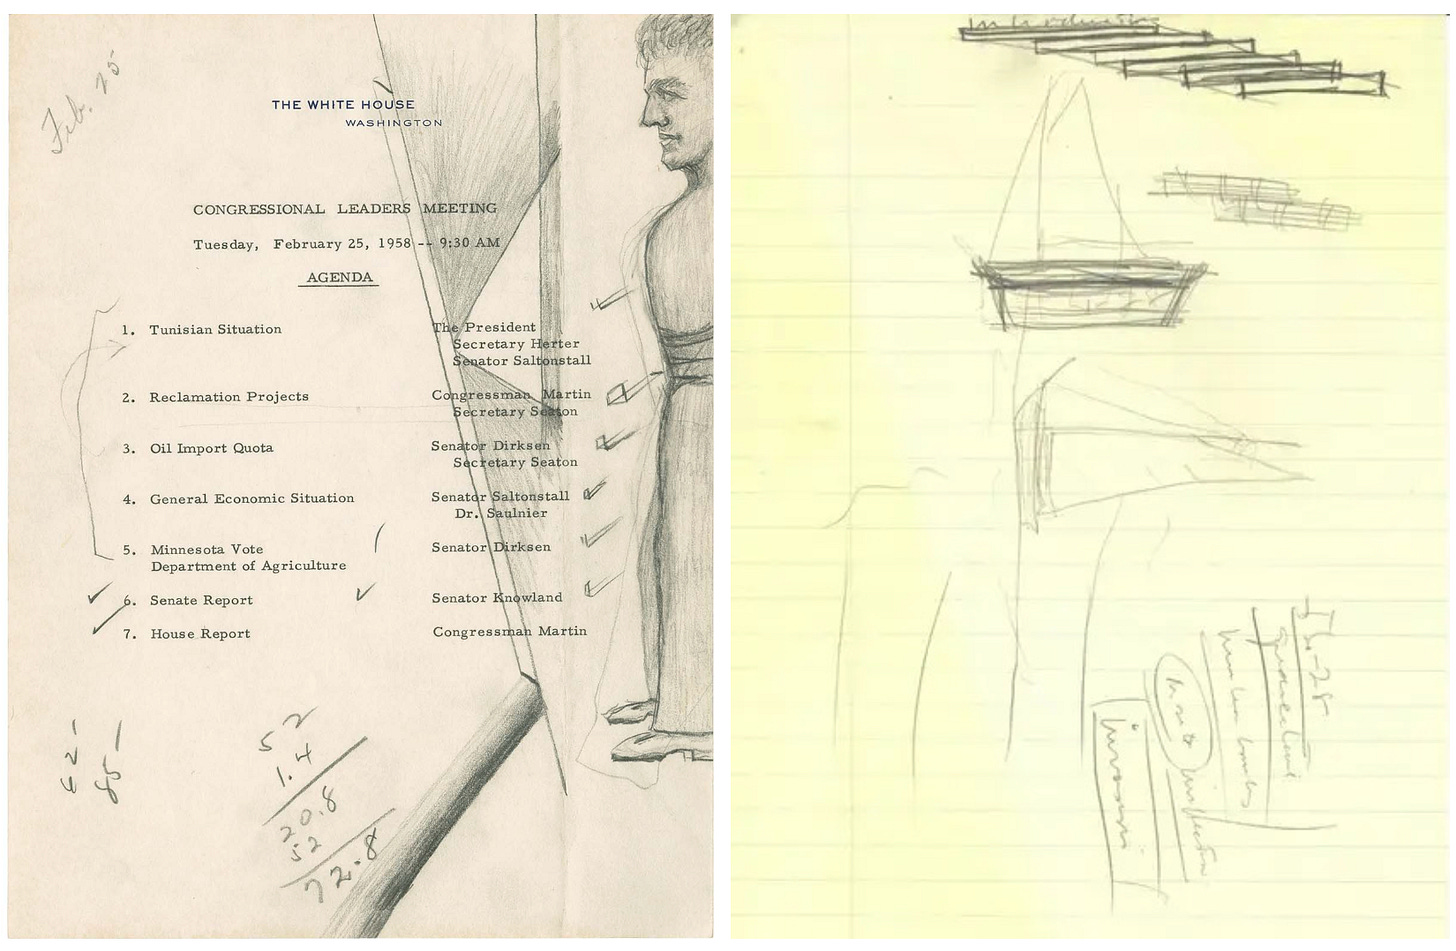 Feb. 25
THE WHITE HOUSE
WASHINGTON
CONGRESSIONAL LEADERS MEETING
Tuesday, February 25, 1958 -- 9:30 AM
AGENDA
1. Tunisian Situation The President
Secretary Herter
Senator Saltonstall
2. Reclamation Projects Congressman Martin
Secretary Seaton
3. Oil Import Quota Senator Dirksen
Secretary Seaton
4. General Economic Situation Senator Saltonstall
Dr. Saulnier
5. Minnesota Vote Senator Dirksen
Department of Agriculture
6. Senate Report Senator Knowland
7. House Report Congressman Martin
52
1.4
20.8
52
72.8
62-
85-